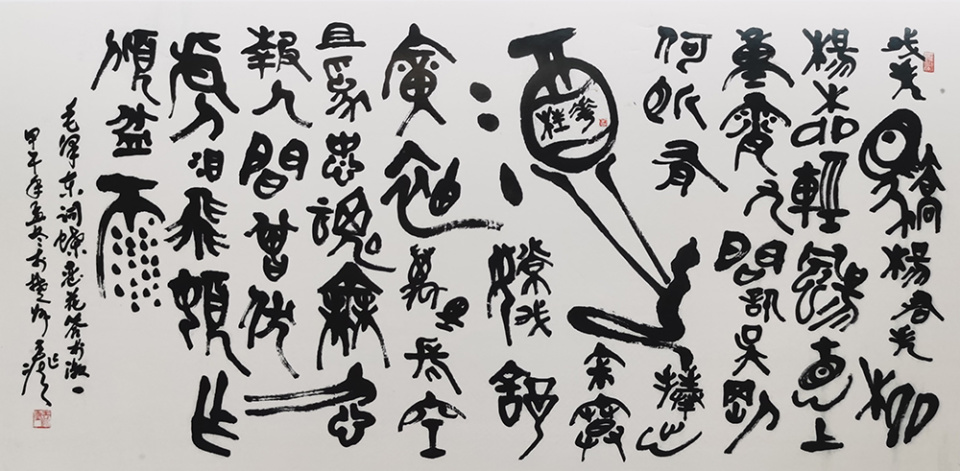 我失驕楊君失柳
楊柳輕颺直上
重霄九問訊吳剛
何所有
捧出
桂花酒
寂寞
嫦娥舒
廣袖
萬里長空
且為忠魂舞忽
報人間曾伏
虎淚飛頓作
傾盆雨
毛澤東詞蝶戀花答李淑一
甲午年孟冬於楚州